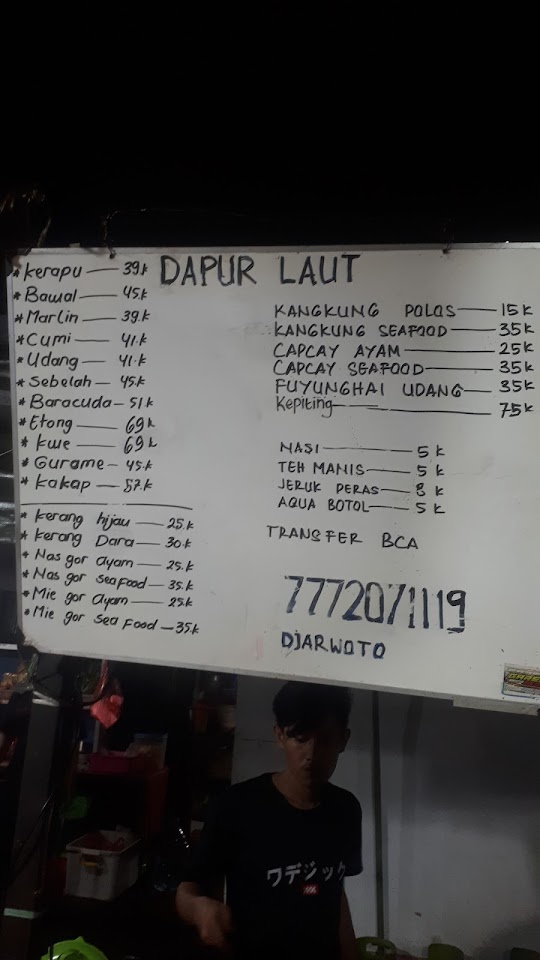 DAPUR LAUT
* Kerapu — 39.k
* Bawal — 45.k
* Marlin — 39.k
* Cumi — 41.k
* Udang — 41.k
* Sebelah — 45.k
* Baracuda — 51k
* Etong — 69k
* Kwe — 69k
* Gurame — 45.k
* Kakap — 57.k
* Kerang hijau — 25.k
* Kerang Dara — 30.k
* Nas gor ayam — 25.k
* Nas gor seafood — 35.k
* Mie gor ayam — 25.k
* Mie gor sea food — 35.k
KANGKUNG POLOS — 15 K
KANGKUNG SEAFOOD — 35 K
CAPCAY AYAM — 25 K
CAPCAY SEAFOOD — 35 K
FUYUNGHAI UDANG — 35 K
Kepiting — 75 K
NASI — 5 K
TEH MANIS — 5 K
JERUK PERAS — 8 K
AQUA BOTOL — 5 K
TRANSFER BCA
7772071119
DJARWOTO
ワデジック